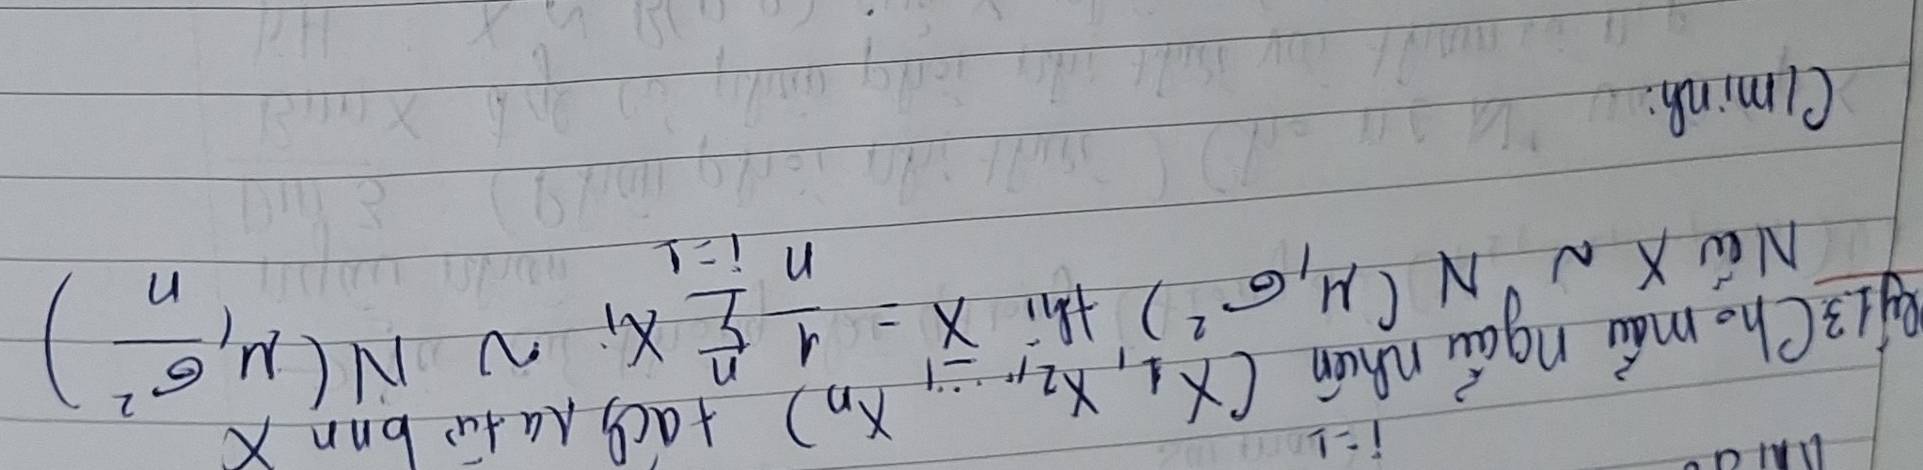 i=1
Cho mẫu ngẫu nhiên (X1, X2, ..., Xn) tách ra từ bnn X
Nếu X ~ N(μ, σ²) thì X̄ = 1/n Σ_{i=1}^{n} Xi ~ N(μ, σ²/n)
C/minh: